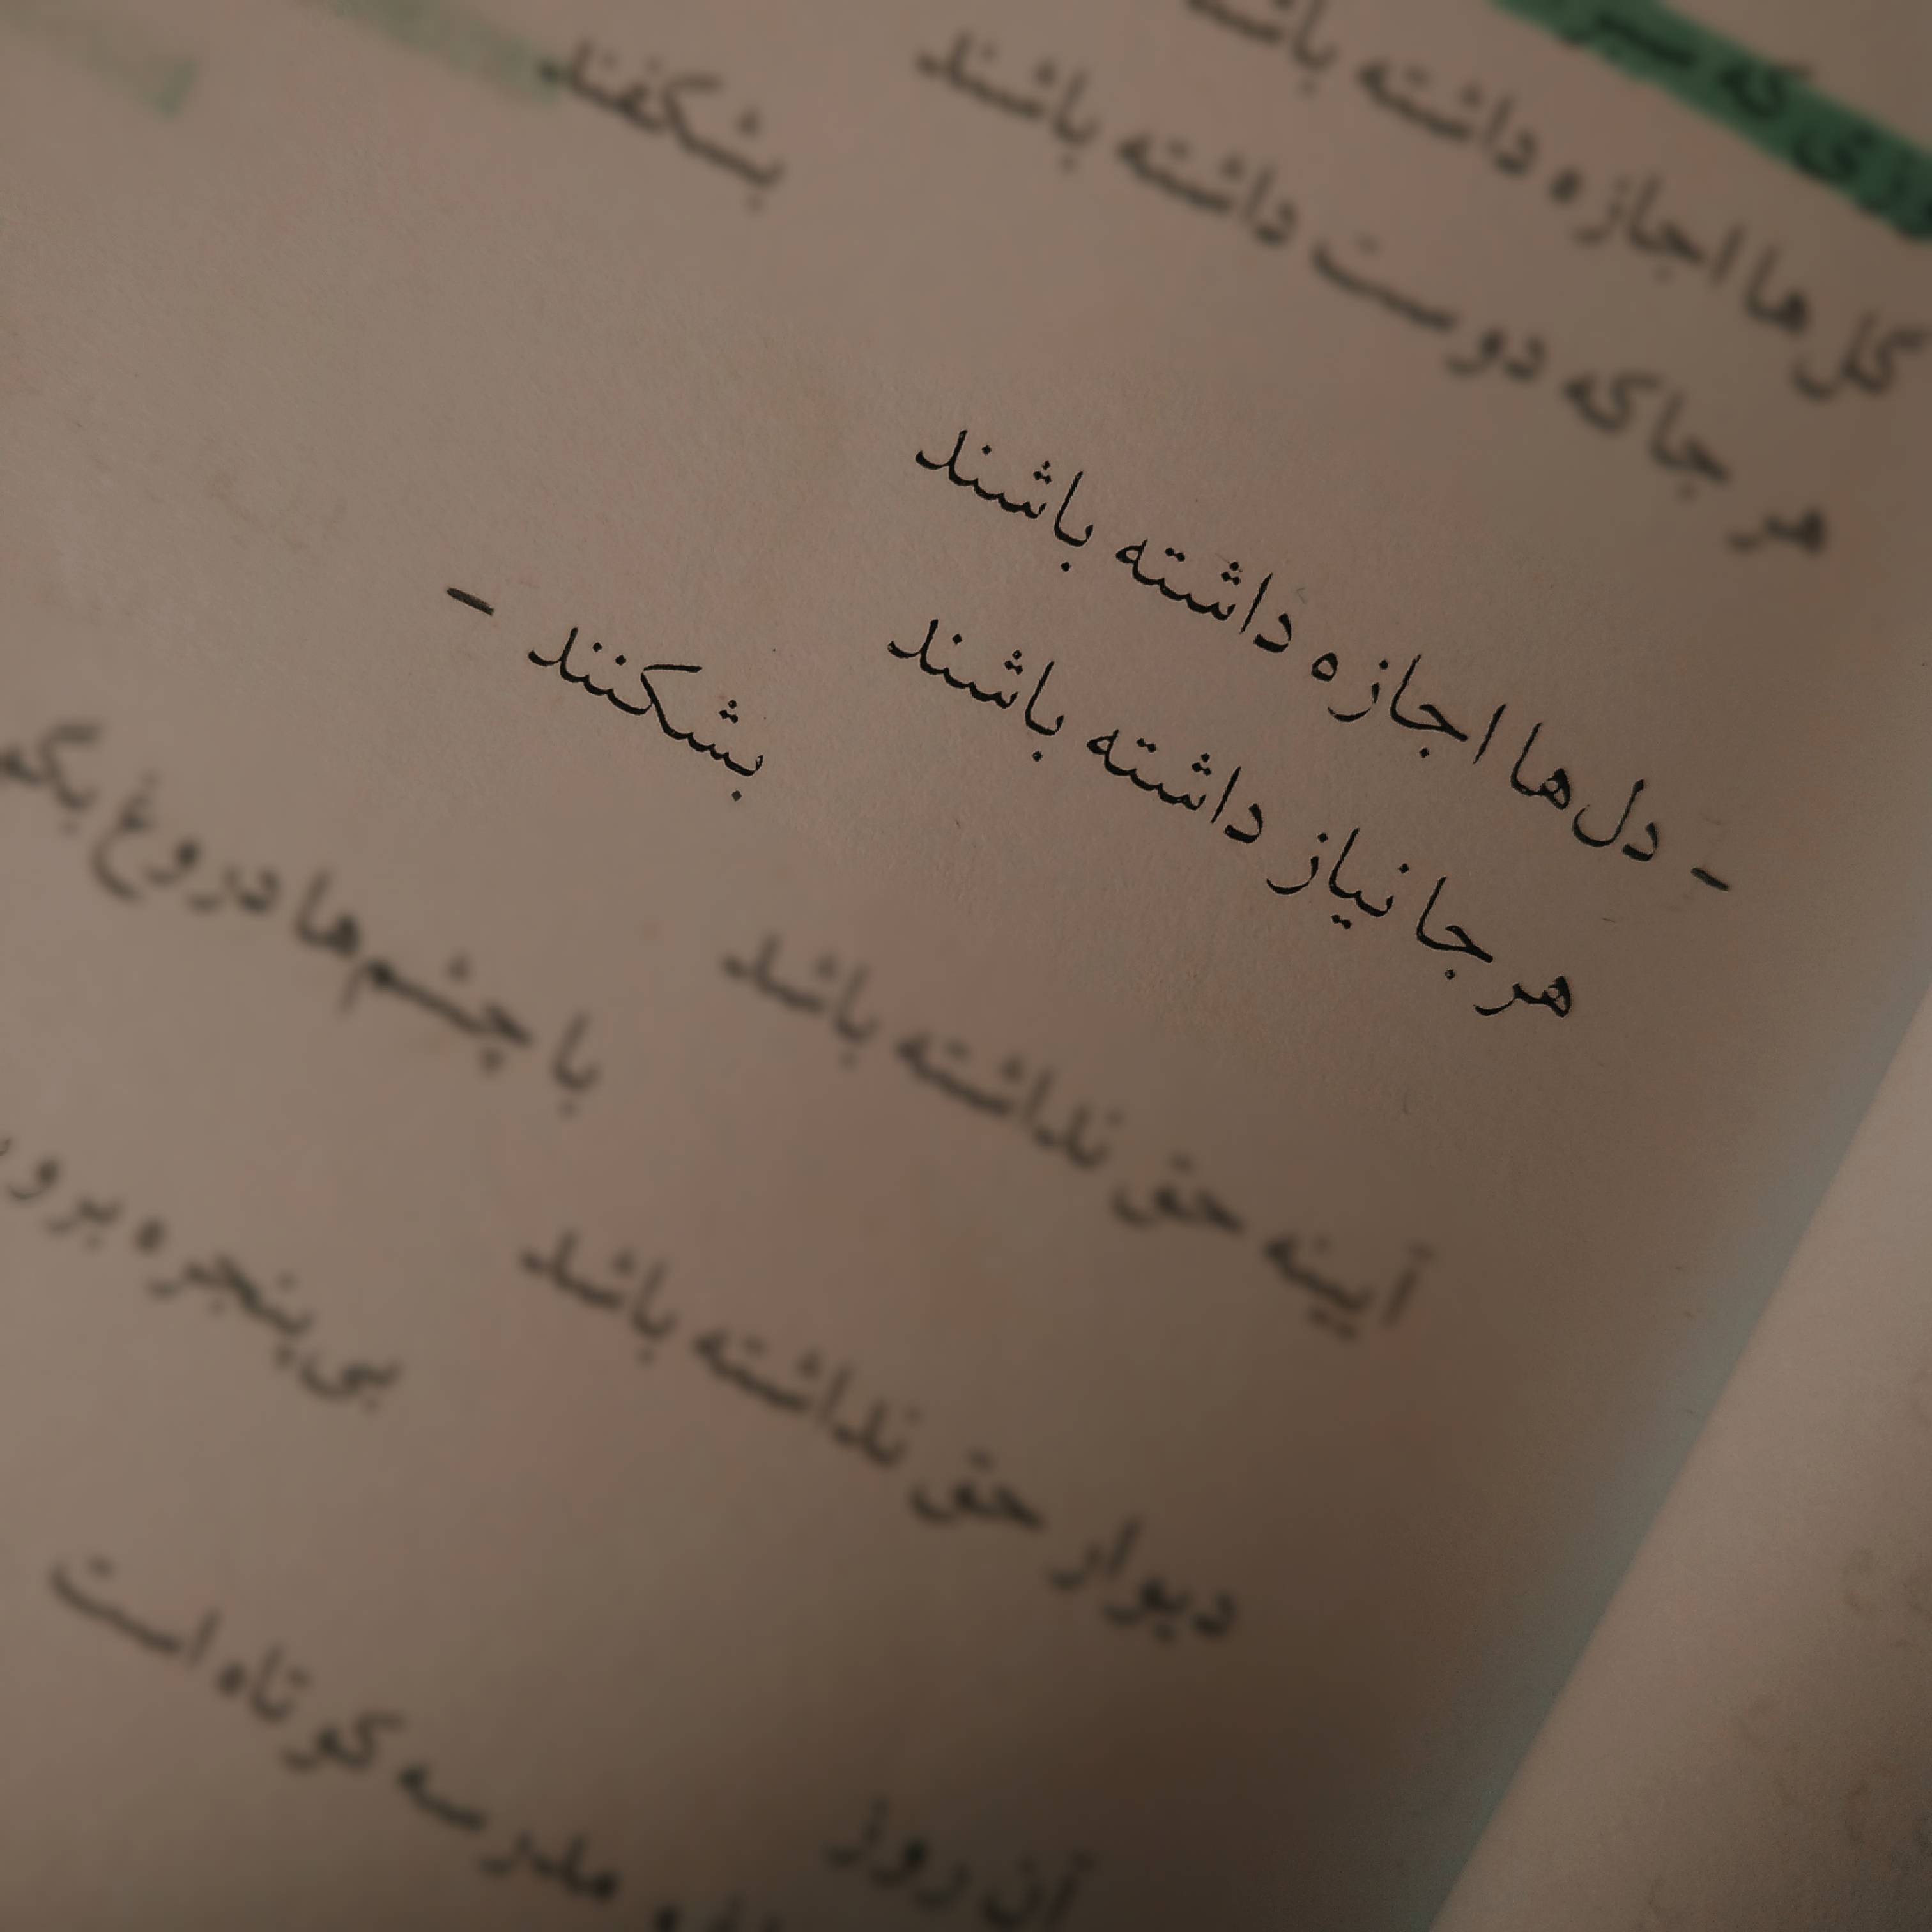 که سر
گل ها اجازه داشته
هر جا که دوست داشته باشند
بشکفند
- دل‌ها اجازه داشته باشند
هر جا نیاز داشته باشند
بشکنند -
آیینه حق نداشته باشد
با چشم‌ها دروغ
دیوار حق نداشته باشد
بی‌پنجره
آن روز
مدرسه کوتاه است